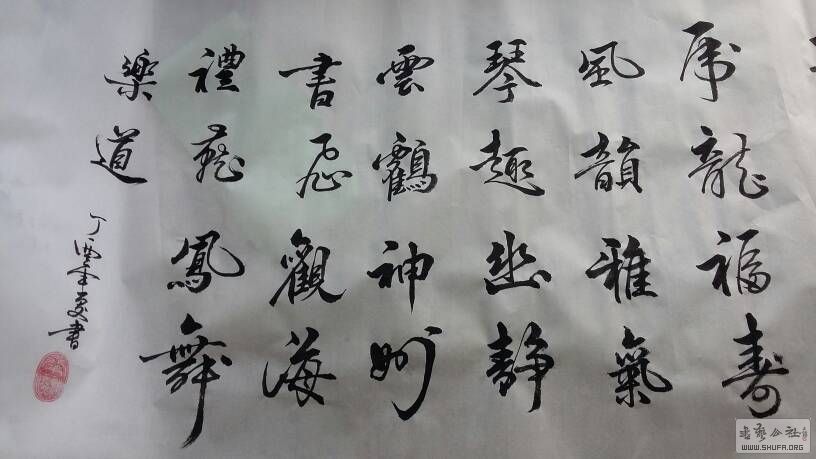 虎龍福壽
風韻雅氣
琴趣幽靜
雲鶴神州
書觀海
禮鳳舞
樂道
丁酉季夏書
书艺公社
WWW.SHUFA.ORG